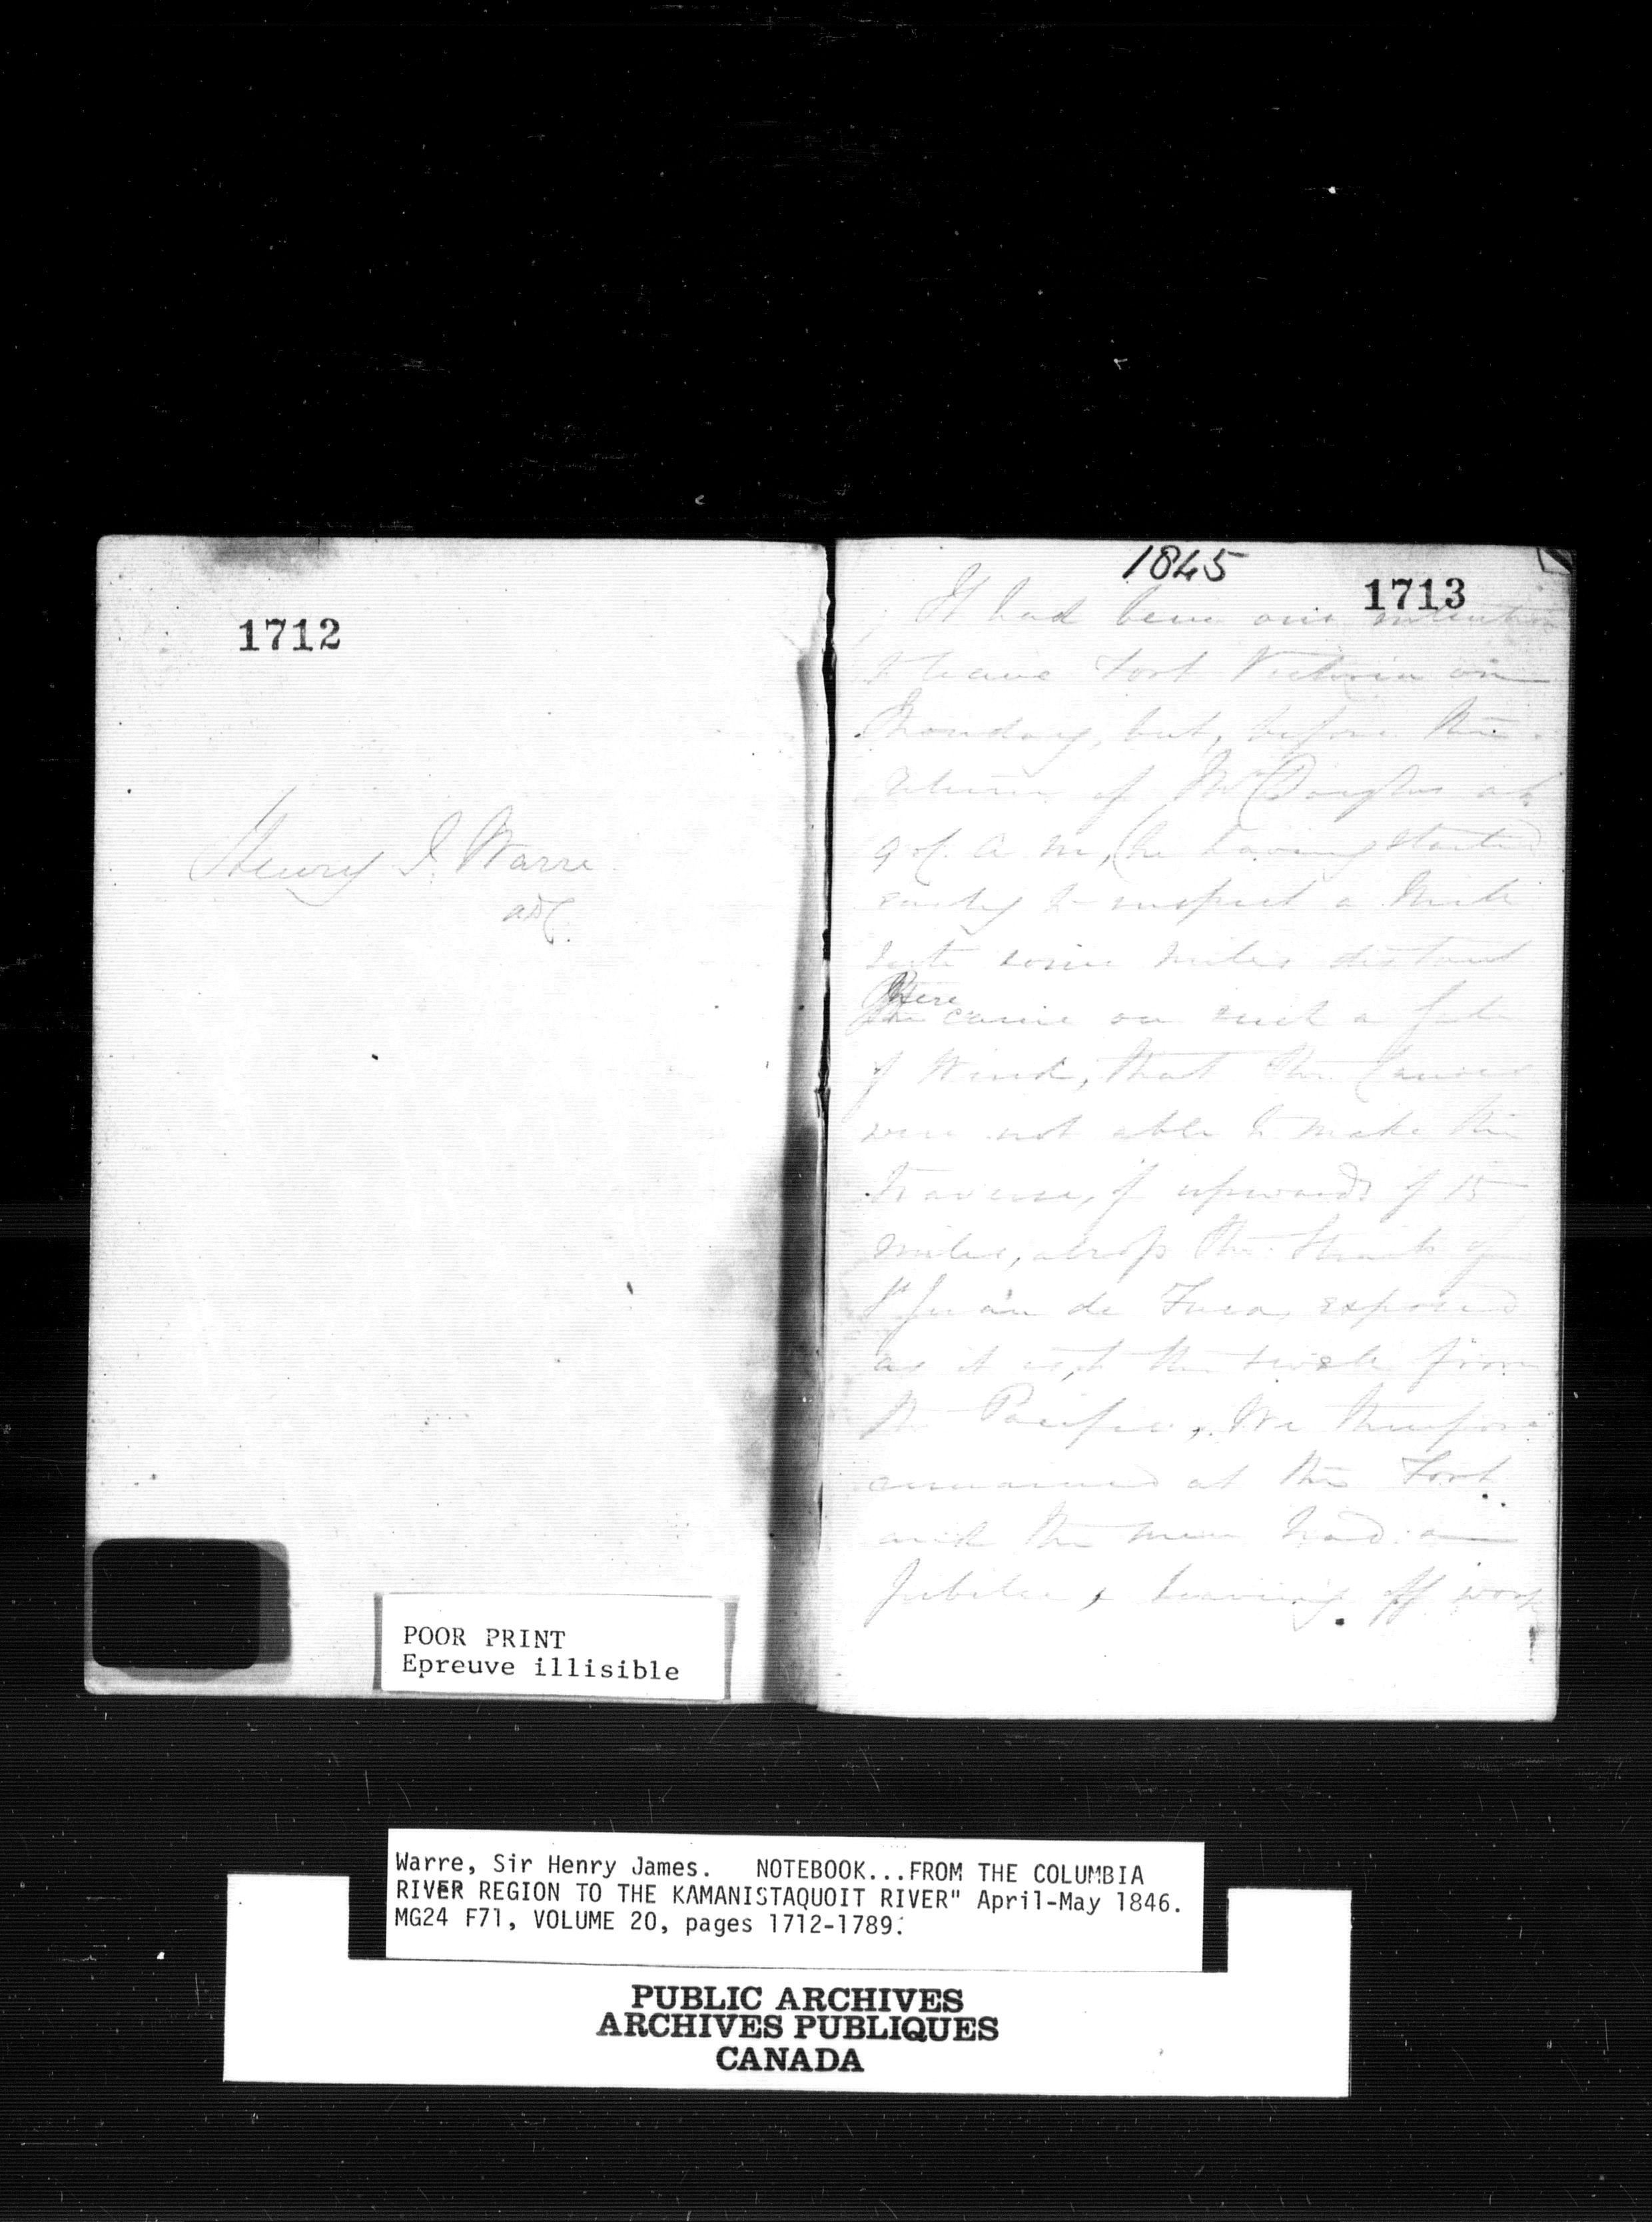 1712
Henry J. Warre
ADC.
1845
1713
It had been our intention
to leave Fort Victoria on
Monday, but, before the
return of Mr Douglas at
9 o/c. A M, (he having started
early to inspect a Mill
some miles distant
There came on such a gale
of Wind, that the Canoes
were not able to make the
traverse, of upwards of 15
miles, across the Straits of
St Juan de Fuca, exposed
as it is, to the swell from
the Pacific, We therefore
remained at the Fort
and the men had a
Jubilee, leaving off work
POOR PRINT
Epreuve illisible
Warre, Sir Henry James. NOTEBOOK...FROM THE COLUMBIA
RIVER REGION TO THE KAMANISTAQUOIT RIVER" April-May 1846.
MG24 F71, VOLUME 20, pages 1712-1789.
PUBLIC ARCHIVES
ARCHIVES PUBLIQUES
CANADA